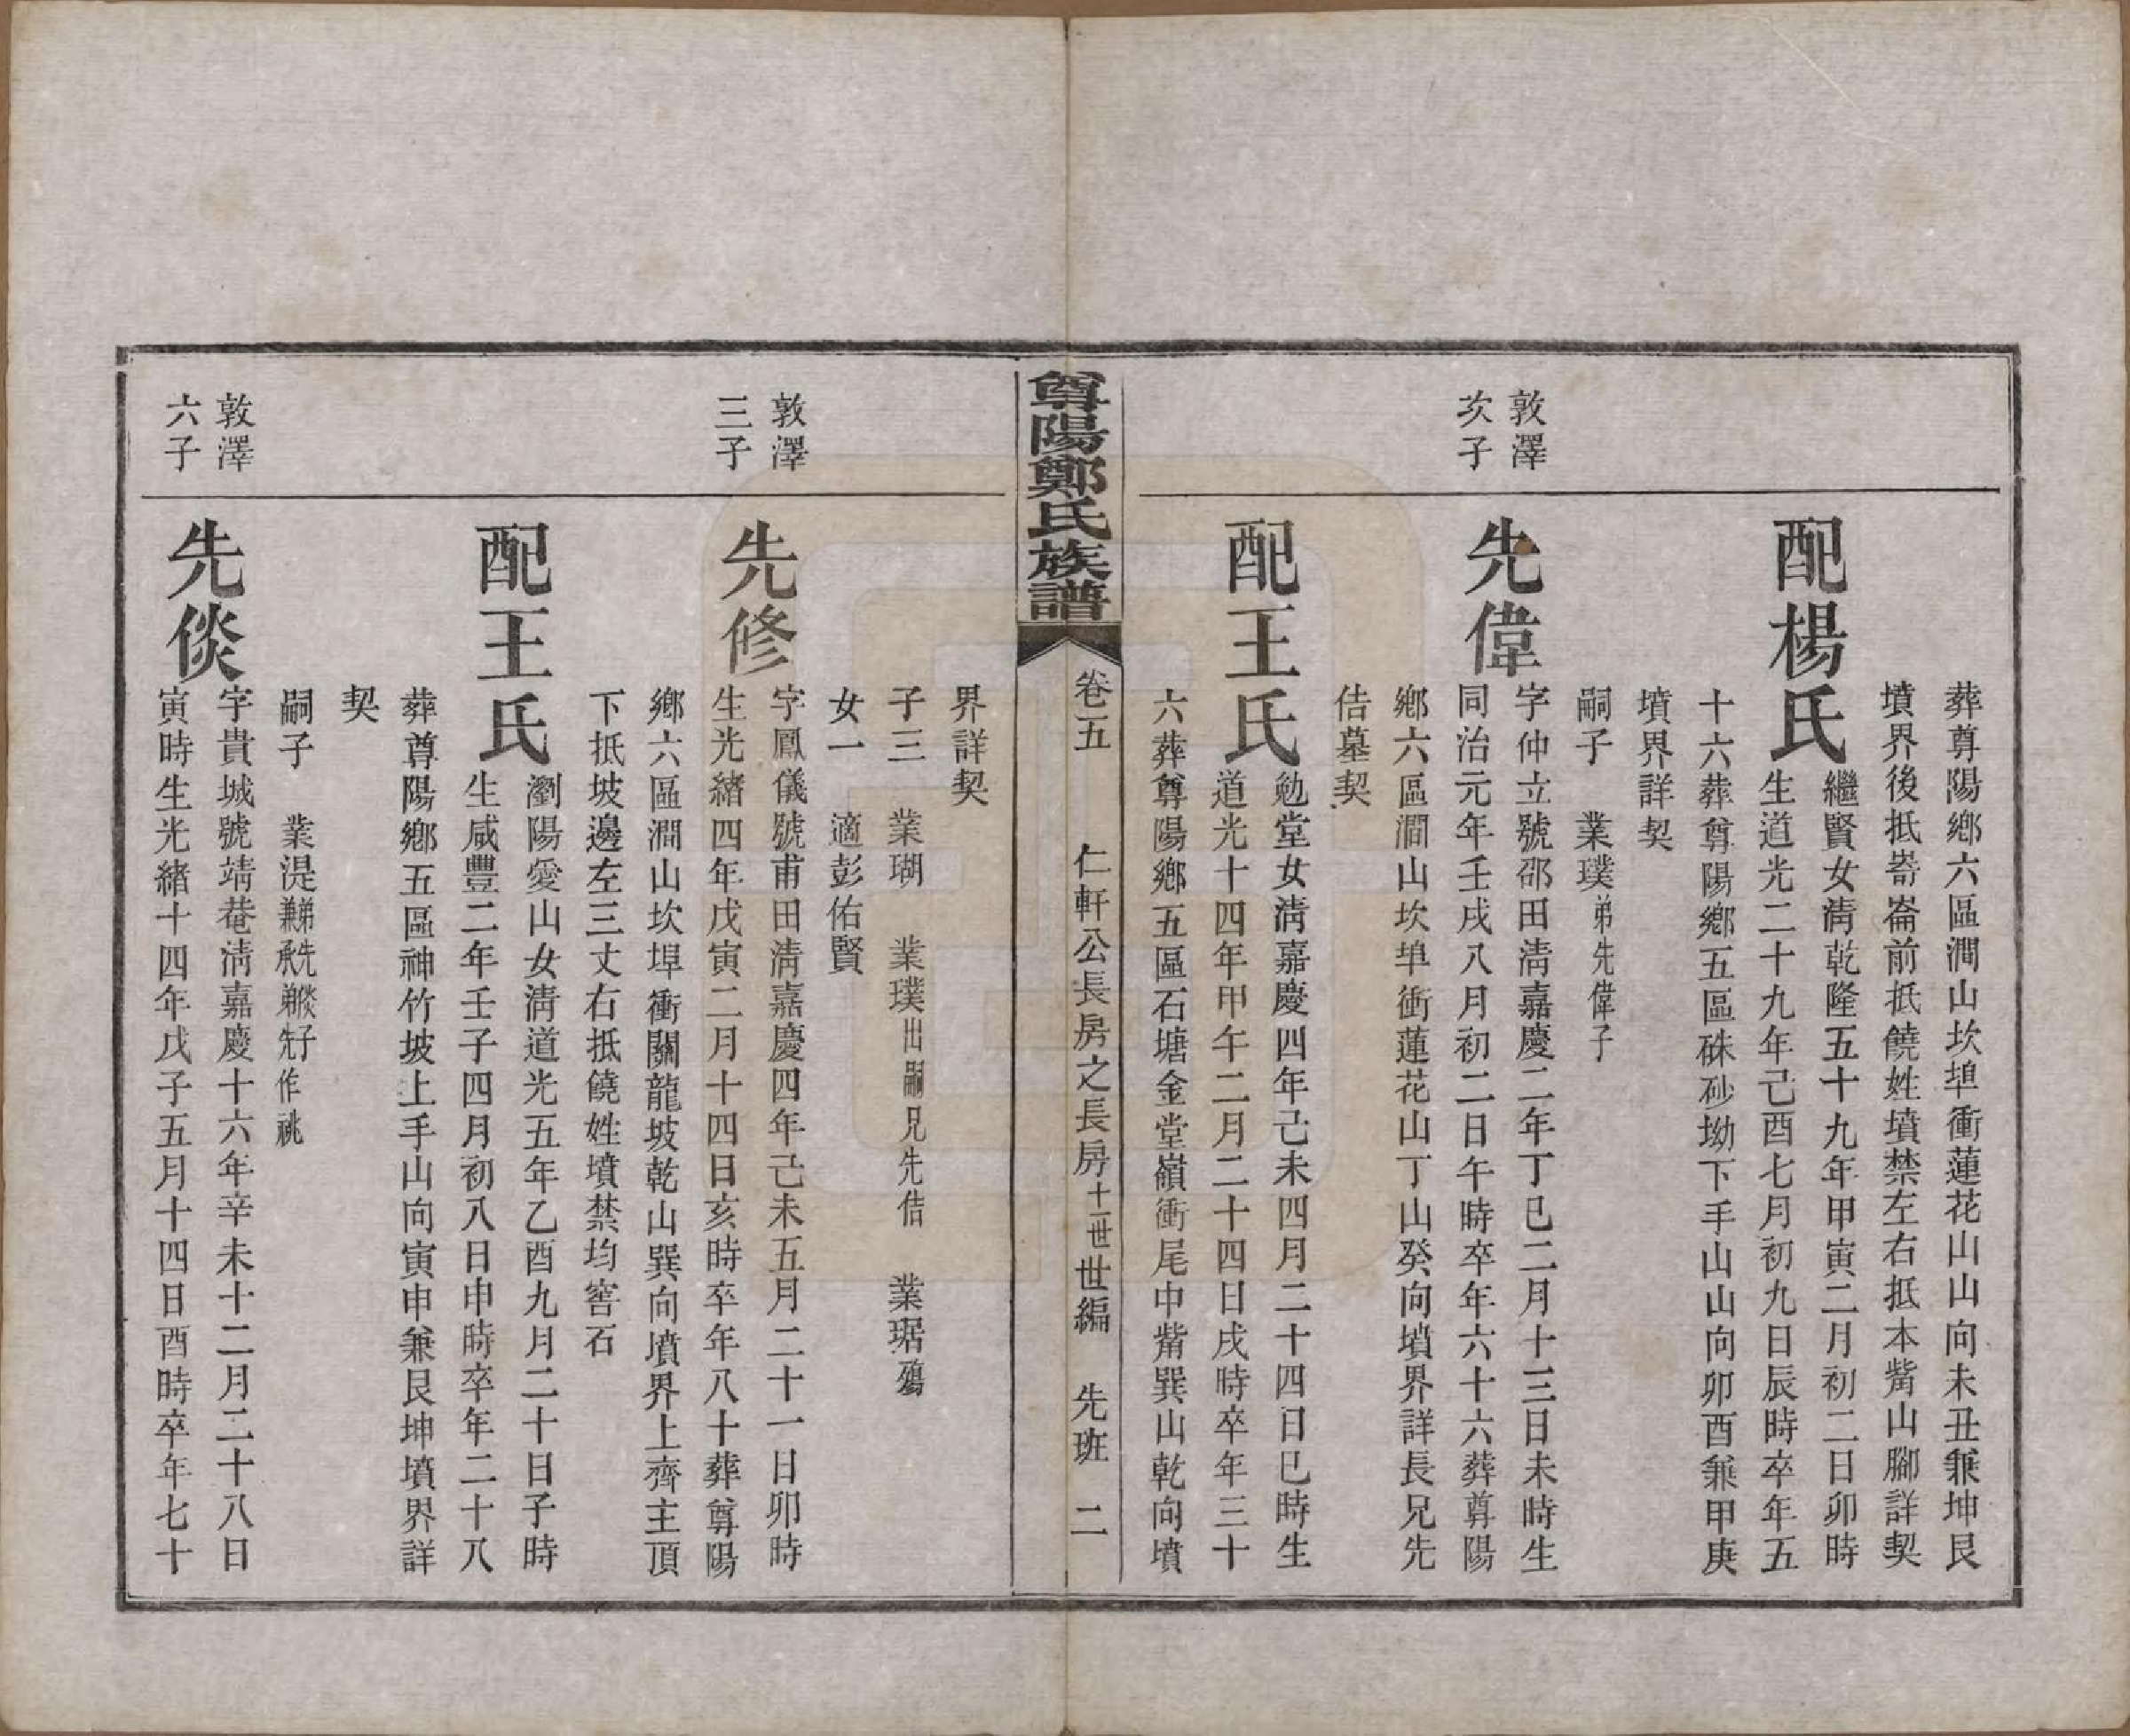 葬尊陽鄉六區澗山坎埠衝蓮花山山向未丑兼坤艮
墳界後抵嵜崙前抵饒姓墳禁左右抵本觜山腳詳契
配楊氏
繼賢女清乾隆五十九年甲寅二月初二日卯時
生道光二十九年己酉七月初九日辰時卒年五
十六葬尊陽鄉五區硃砂坳下手山山向卯酉兼甲庚
墳界詳契
嗣子 業璞弟先偉子
敦澤
次子
先偉
字仲立號邵田清嘉慶二年丁巳二月十三日未時生
同治元年壬戌八月初二日午時卒年六十六葬尊陽
鄉六區澗山坎埠衝蓮花山丁山癸向墳界詳長兄先
佶墓契
配王氏
勉堂女清嘉慶四年己未四月二十四日巳時生
道光十四年甲午二月二十四日戌時卒年三十
六葬尊陽鄉五區石塘金堂嶺衝尾中觜巽山乾向墳
尊陽鄭氏族譜
卷五 仁軒公長房之長房十一世世編 先班 二
界詳契
子三 業瑚 業璞出嗣兄先佶 業琚殤
女一 適彭佑賢
敦澤
三子
先修
字鳳儀號甫田清嘉慶四年己未五月二十一日卯時
生光緒四年戊寅二月十四日亥時卒年八十葬尊陽
鄉六區澗山坎埠衝關龍坡乾山巽向墳界上齊主頂
下抵坡邊左三丈右抵饒姓墳禁均窖石
配王氏
瀏陽愛山女清道光五年乙酉九月二十日子時
生咸豐二年壬子四月初八日申時卒年二十八
葬尊陽鄉五區神竹坡上手山向寅申兼艮坤墳界詳
契
嗣子 業湜弟先倓子兼承弟先作祧
敦澤
六子
先倓
字貴城號靖菴清嘉慶十六年辛未十二月二十八日
寅時生光緒十四年戊子五月十四日酉時卒年七十